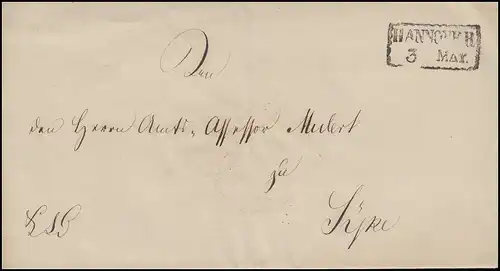 HANNOVER
3 MAY.
Den
den Herrn Amts-Assessor Mulert
zu
Syke